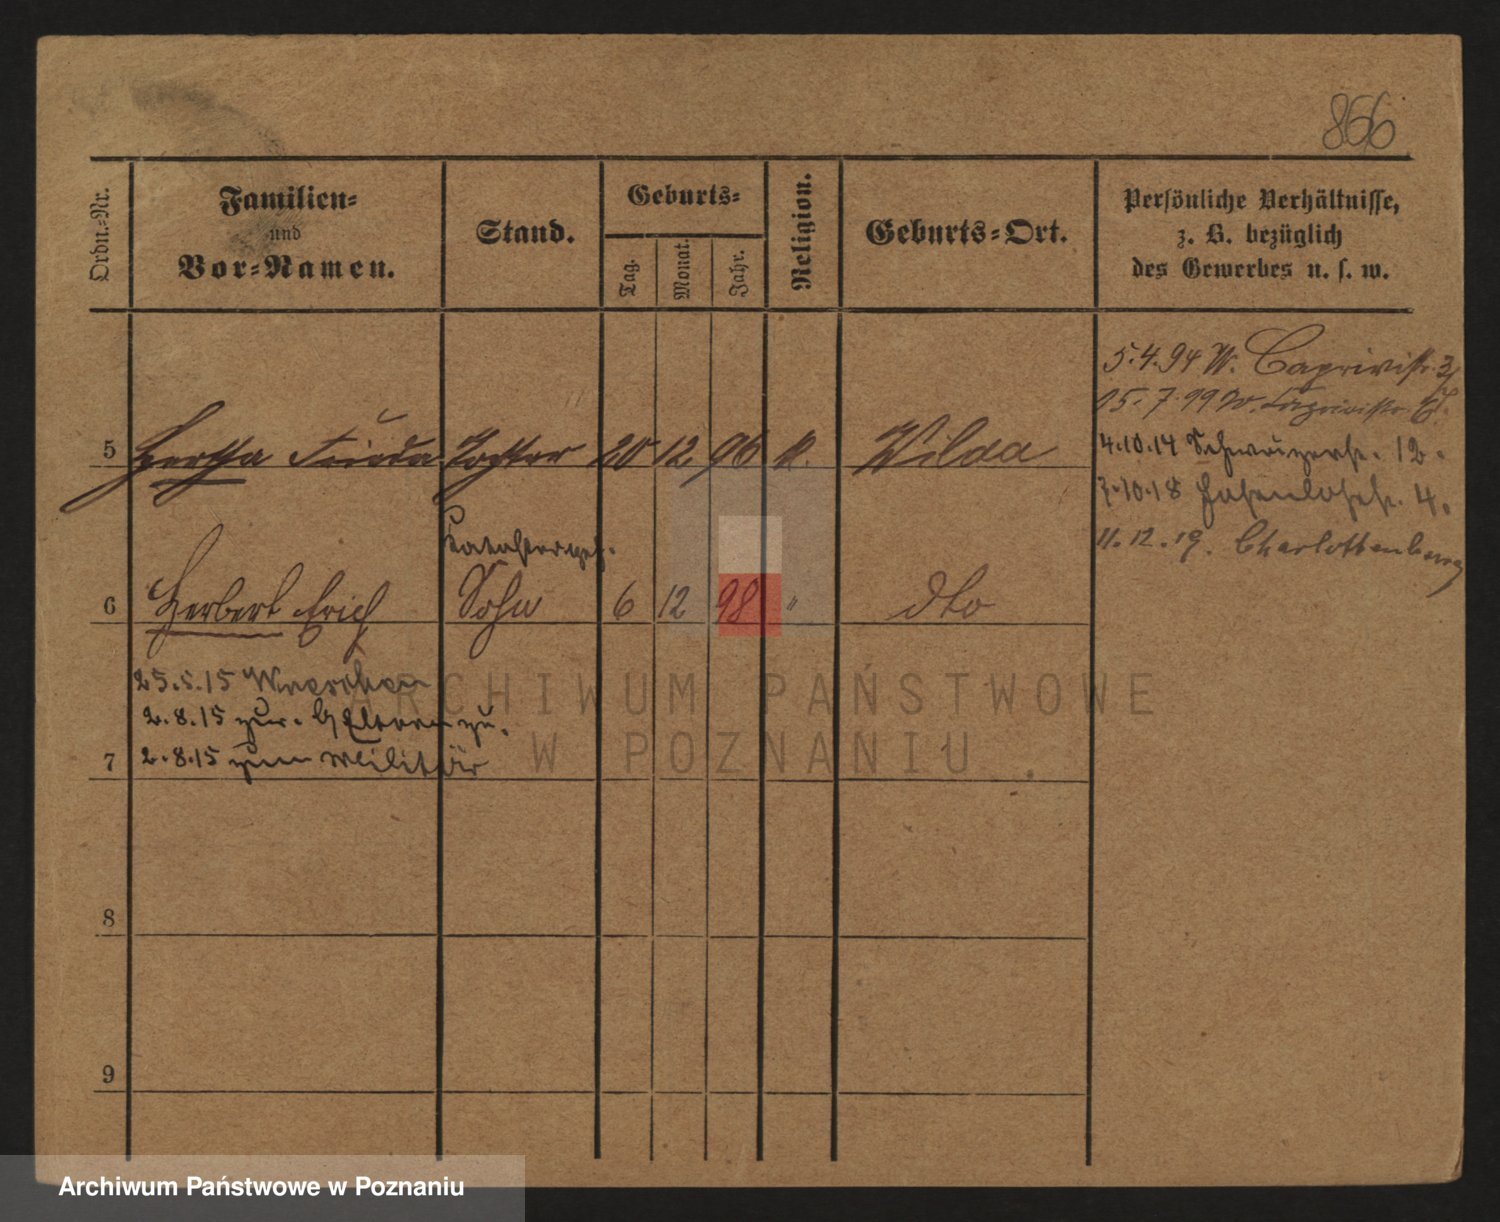 866
Ordn.-Nr.
Familien-
und
Vor-Namen.
Stand.
Geburts-
Tag.
Monat.
Jahr.
Religion.
Geburts-Ort.
Persönliche Verhältnisse,
z. B. bezüglich
des Gewerbes u. s. w.
5.4.94 W. Caprivistr.
15.7.99 W.
5 Hertha Frieda Tochter 20 12 96 Wilda
4.10.14 12.
7.10.18 4.
11.12.19. Charlottenburg
6 Herbert Erich Sohn 6 12 98 " dto
25.5.15 Wreschen
2.8.15 zur. Eltern zu.
7 2.8.15 zum Militär
8
9
ARCHIWUM PAŃSTWOWE
W POZNANIU
Archiwum Państwowe w Poznaniu